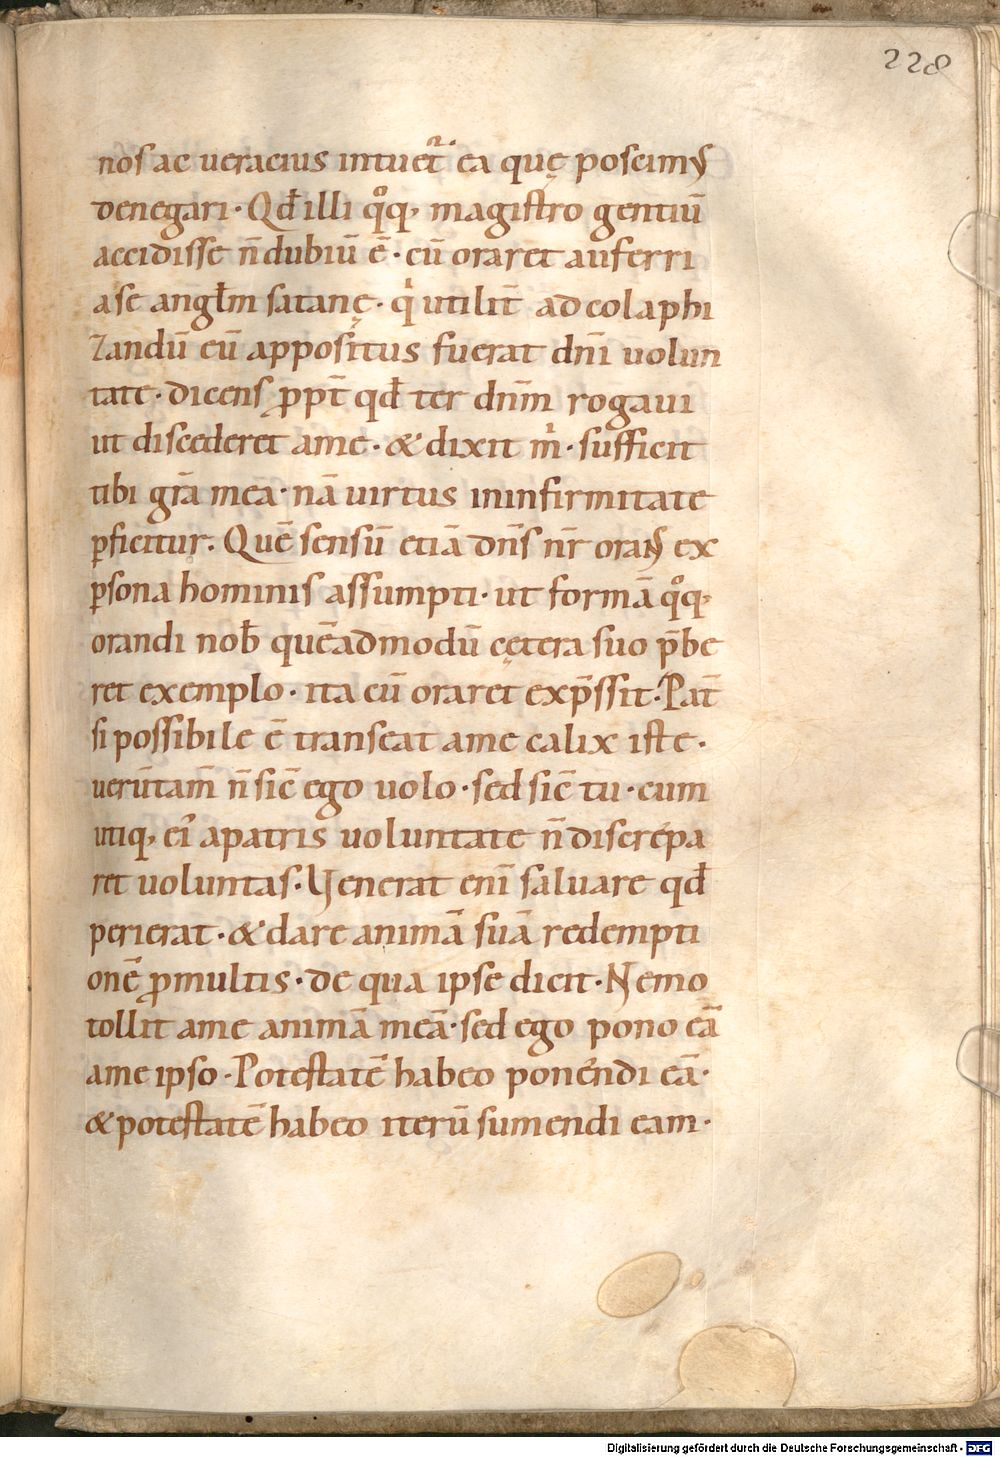 228
nos ac ueracius intuet᷑. ea quę poscimꝰ
denegari. Qđ illi qͦq; magistro gentiū
accidisse n̄ dubiū ē. cū oraret auferri
a se angl̄m satanę. qͥ utilit̄ ad colaphi
zandū eū appositus fuerat dn̄i uolun
tate. dicens ꝓpt̄ qđ ter dn̄m rogaui
ut discederet a me. & dixit mͥ. sufficit
tibi gr̄a mea. nā uirtus in infirmitate
ꝑficitur. Quē sensū etiā dn̄s nr̄ oraɴſ ex
ꝑsona hominis assumpti. ut formā qͦq;
orandi nob̄ quēadmodū cętera suo p̄be
ret exemplo. ita cū oraret exp̄ssit. Pat̄
si possibile ē transeat a me calix iste.
uerūtam̄ n̄ sic̄ ego uolo. sed sic̄ tu. cum
utiq; ei᷑ a patris uoluntate n̄ discrepa
ret uoluntas. Uenerat eni᷑ saluare qđ
perierat. & dare animā suā redempti
onē ꝓ multis. de qua ipse dicit. Nemo
tollit a me animā meā. sed ego pono eā
a me ipso. Potestatē habeo ponendi eā.
& potestatē habeo iterū sumendi eam.
Digitalisierung gefördert durch die Deutsche Forschungsgemeinschaft - DFG